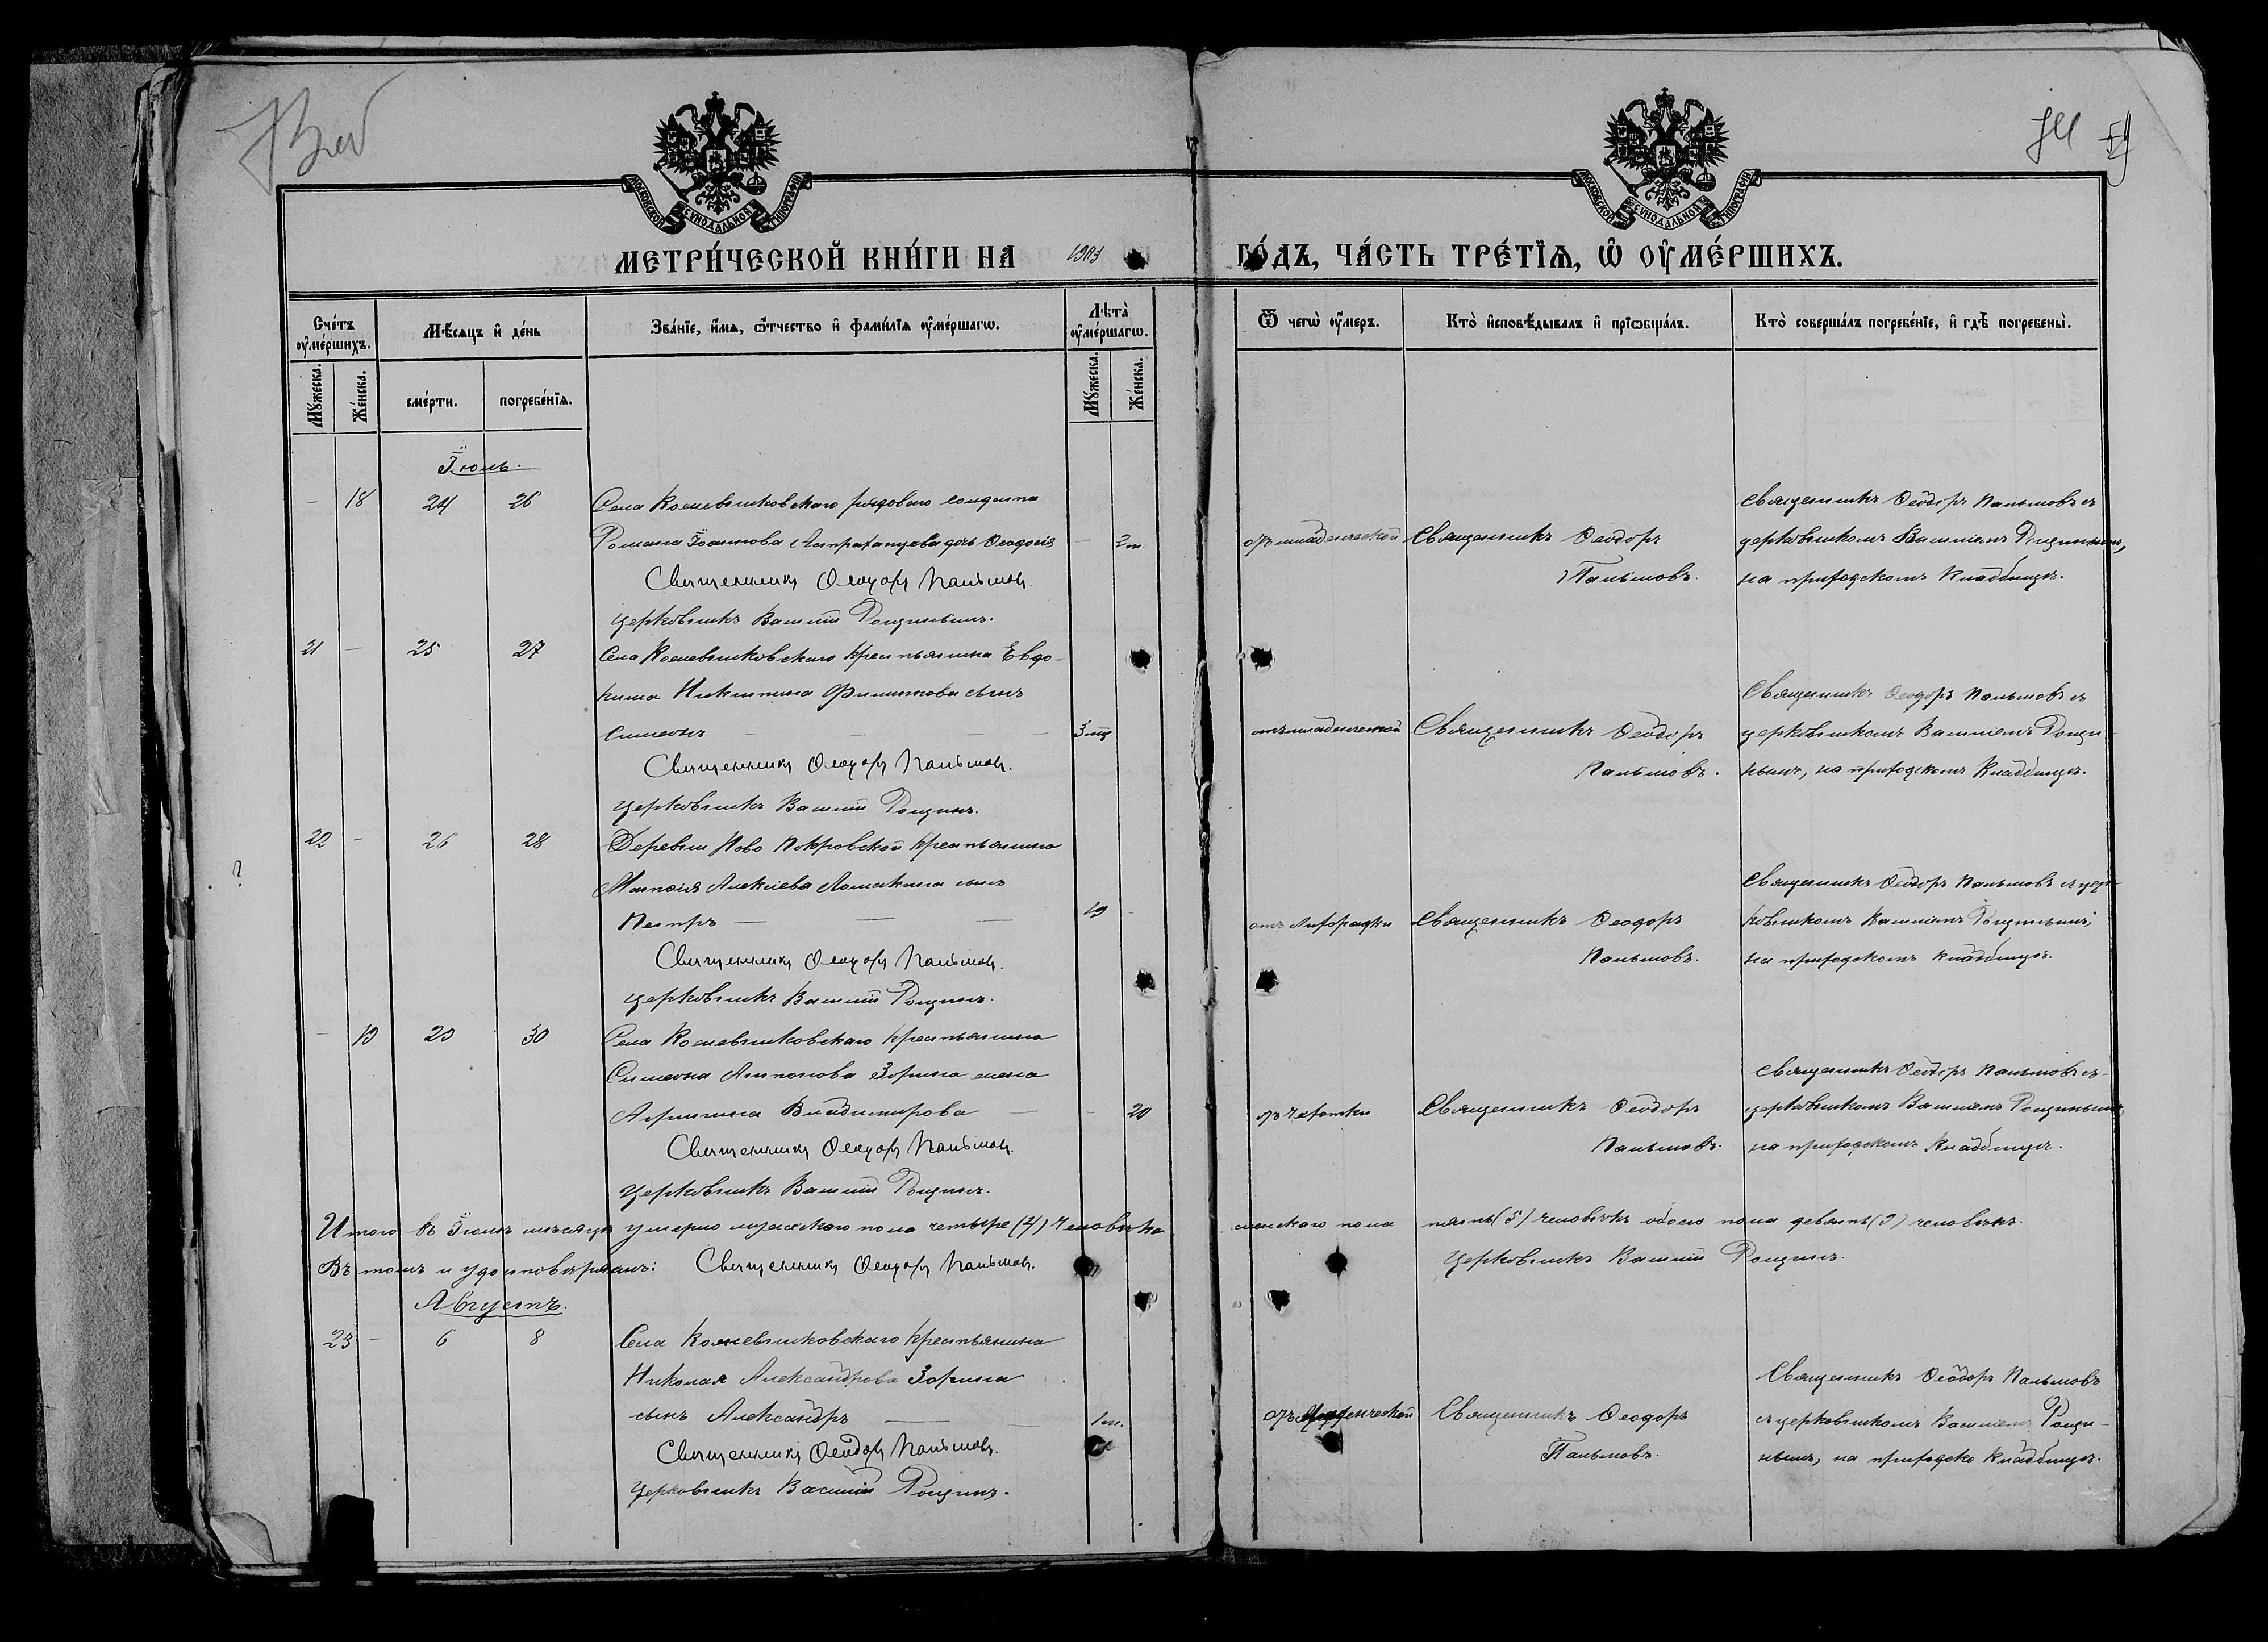 МОСКОВСКОЙ СѴНОДАЛЬНОЙ ТИПОГРАФІИ
МОСКОВСКОЙ СѴНОДАЛЬНОЙ ТИПОГРАФІИ
59
МЕТРИ́ЧЕСКОЙ КНИ́ГИ НА
ГО́ДЪ, ЧА́СТЬ ТРЕ́ТЇѦ, Ѡ҆ ОУ҆МЕ́РШИХЪ.
Сче́тъ оу҆ме́ршихъ.
Мѣ́сяцъ и҆ де́нь
Зва́нїе, и҆́мя, ѻ҆́тчество и҆ фами́лїя оу҆ме́ршагѡ.
Лѣ́та̀ оу҆ме́ршагѡ.
Ѿ чегѡ̀ оу҆́меръ.
Кто̀ и҆сповѣ́дывалъ и҆ прїѡбща́лъ.
Кто̀ соверша́лъ погребе́нїе, и҆ гдѣ̀ погребены̀.
Мꙋ́жеска.
Же́нска.
сме́рти.
погребе́нїя.
Мꙋ́жеска.
Же́нска.
Іюль.
- 18 24 26 Села Кожевниковскаго рядового солдата
Романа Іоаннова дочь Ѳеодосія - 2 м.
Священникъ Ѳеодоръ Пальмовъ.
Церковникъ Василій Рощинъ.
отъ младенческой
Священникъ Ѳеодоръ
Пальмовъ.
Священникъ Ѳеодоръ Пальмовъ съ
церковникомъ Василіемъ Рощинымъ,
на приходскомъ кладбищѣ.
21 - 25 27 Села Кожевниковскаго крестьянина Евдо-
кима Никитина Филиппова сынъ
Симеонъ - - - - 3 мц
Священникъ Ѳеодоръ Пальмовъ.
Церковникъ Василій Рощинъ.
отъ младенческой
Священникъ Ѳеодоръ
Пальмовъ.
Священникъ Ѳеодоръ Пальмовъ съ
церковникомъ Василіемъ Рощи-
нымъ, на приходскомъ кладбищѣ.
22 - 26 28 Деревни Ново Покровской крестьянина
Алексіева Ломакина сынъ
Петръ - - - 19 -
Священникъ Ѳеодоръ Пальмовъ.
Церковникъ Василій Рощинъ.
отъ лихорадки
Священникъ Ѳеодоръ
Пальмовъ.
Священникъ Ѳеодоръ Пальмовъ съ цер-
ковникомъ Василіемъ Рощинымъ,
на приходскомъ кладбищѣ.
?
- 19 29 30 Села Кожевниковскаго крестьянина
Симеона Антонова Зорина жена
Агрипина Владимирова - - 20
Священникъ Ѳеодоръ Пальмовъ.
Церковникъ Василій Рощинъ.
отъ чахотки
Священникъ Ѳеодоръ
Пальмовъ.
Священникъ Ѳеодоръ Пальмовъ съ
церковникомъ Василіемъ Рощинымъ
на приходскомъ кладбищѣ.
Итого въ Іюлѣ мѣсяцѣ умерло мужскаго пола четыре (4) человѣка женскаго пола пять (5) человѣкъ обоего пола девять (9) человѣкъ.
Въ томъ и удостовѣряемъ: Священникъ Ѳеодоръ Пальмовъ. Церковникъ Василій Рощинъ.
Августъ.
23 - 6 8 Села Кожевниковскаго крестьянина
Николая Александрова Зорина
сынъ Александръ - - 1 м.
Священникъ Ѳеодоръ Пальмовъ.
Церковникъ Василій Рощинъ.
отъ младенческой
Священникъ Ѳеодоръ
Пальмовъ.
Священникъ Ѳеодоръ Пальмовъ
съ церковникомъ Василіемъ Рощи-
нымъ, на приходско кладбищѣ.